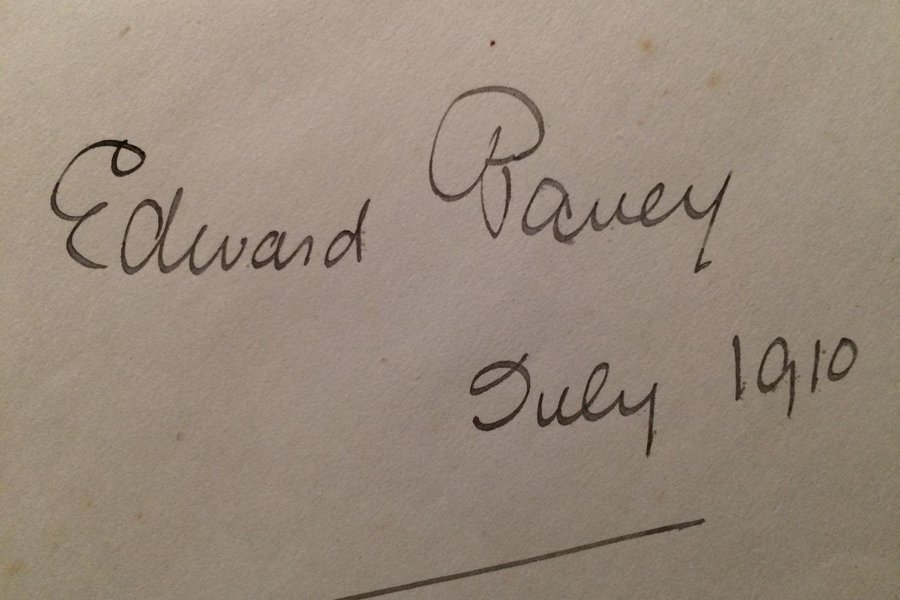 Edward Pavey
July 1910